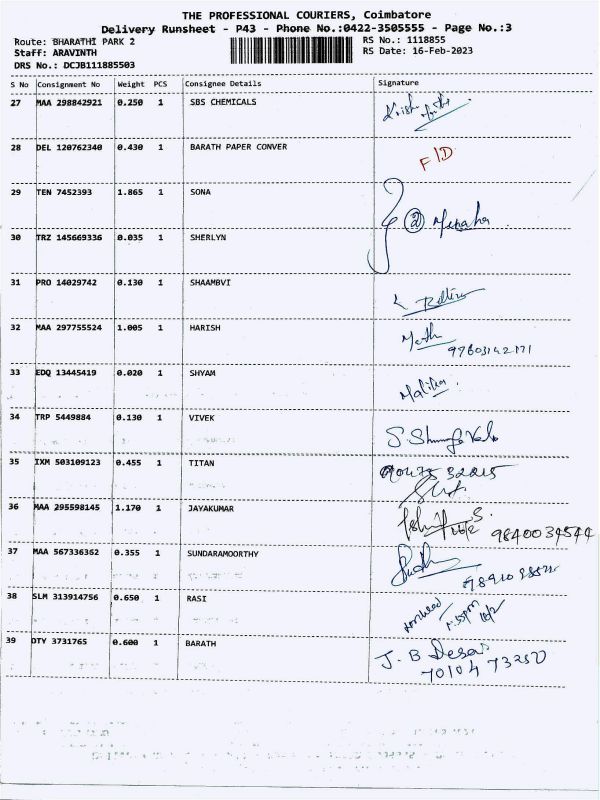 THE PROFESSIONAL COURIERS, Coimbatore
Delivery Runsheet - P43 - Phone No.:0422-3505555 - Page No.:3
Route: BHARATHI PARK 2
Staff: ARAVINTH
DRS No.: DCJB111885503
RS No.: 1118855
RS Date: 16-Feb-2023
S No Consignment No Weight PCS Consignee Details Signature
27 MAA 298842921 0.250 1 SBS CHEMICALS
28 DEL 120762340 0.430 1 BARATH PAPER CONVER F/D
29 TEN 7452393 1.865 1 SONA
② Menaha
30 TRZ 145669336 0.035 1 SHERLYN
31 PRO 14029742 0.130 1 SHAAMBVI
32 MAA 297755524 1.005 1 HARISH
33 EDQ 13445419 0.020 1 SHYAM
34 TRP 5449884 0.130 1 VIVEK
35 IXM 503109123 0.455 1 TITAN
36 MAA 295598145 1.170 1 JAYAKUMAR
9840034544
37 MAA 567336362 0.355 1 SUNDARAMOORTHY
38 SLM 313914756 0.650 1 RASI
39 DTY 3731765 0.600 1 BARATH J. B Desai
70104 73250